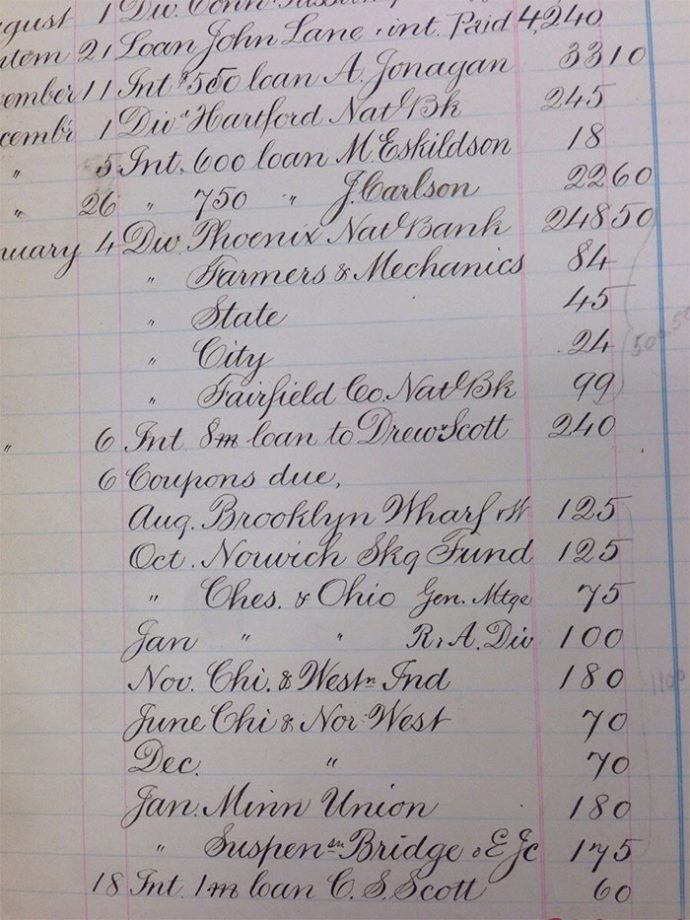 gust 1 Div. Conn
tem 21 Loan John Lane & int. Paid 4,240
ember 11 Int $550 loan A. Jonagan 33 10
cembr 1 Div Hartford Natl Bk 245
" 5 Int. 600 loan M Eskildson 18
" 26 " 750 " J. Carlson 22 60
nuary 4 Div. Phoenix Natl Bank 248 50
" Farmers & Mechanics 84
" State 45
" City 24
" Fairfield Co. Natl Bk 99
" 6 Int 8m loan to Drew Scott 240
6 Coupons due,
Aug. Brooklyn Wharf 125
Oct. Norwich Skg Fund 125
" Ches. & Ohio Gen. Mtge 75
Jan " " R. & A. Div 100
Nov. Chi. & Westn Ind 180
June Chi & Nor West 70
Dec. " 70
Jan. Minn Union 180
" Suspensn Bridge & E Jc 175
18 Int. 1m loan C. S. Scott 60